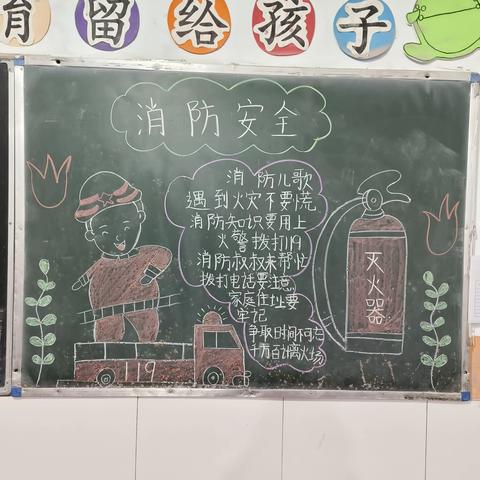 育 留 给 孩 子
消防安全
消防儿歌
遇到火灾不要慌
消防知识要用上
火警拨打119
消防叔叔来帮忙
拨打电话要注意
家庭住址要
牢记
争取时间不可忘
千万百计离火场
灭火器
119